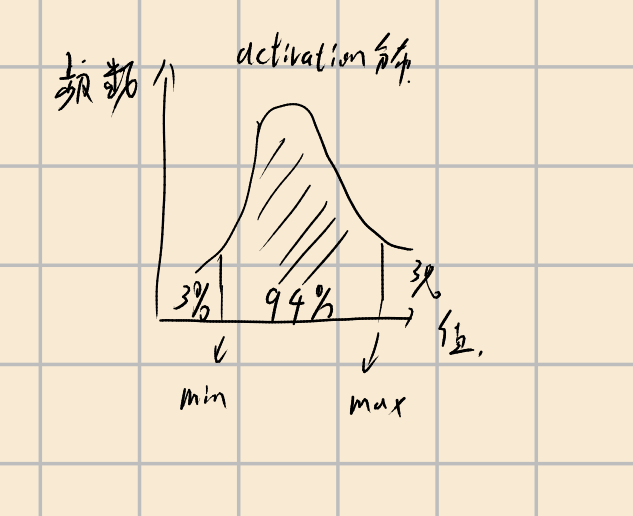 activation 分布
频数
3%
94%
3%
值.
min
max